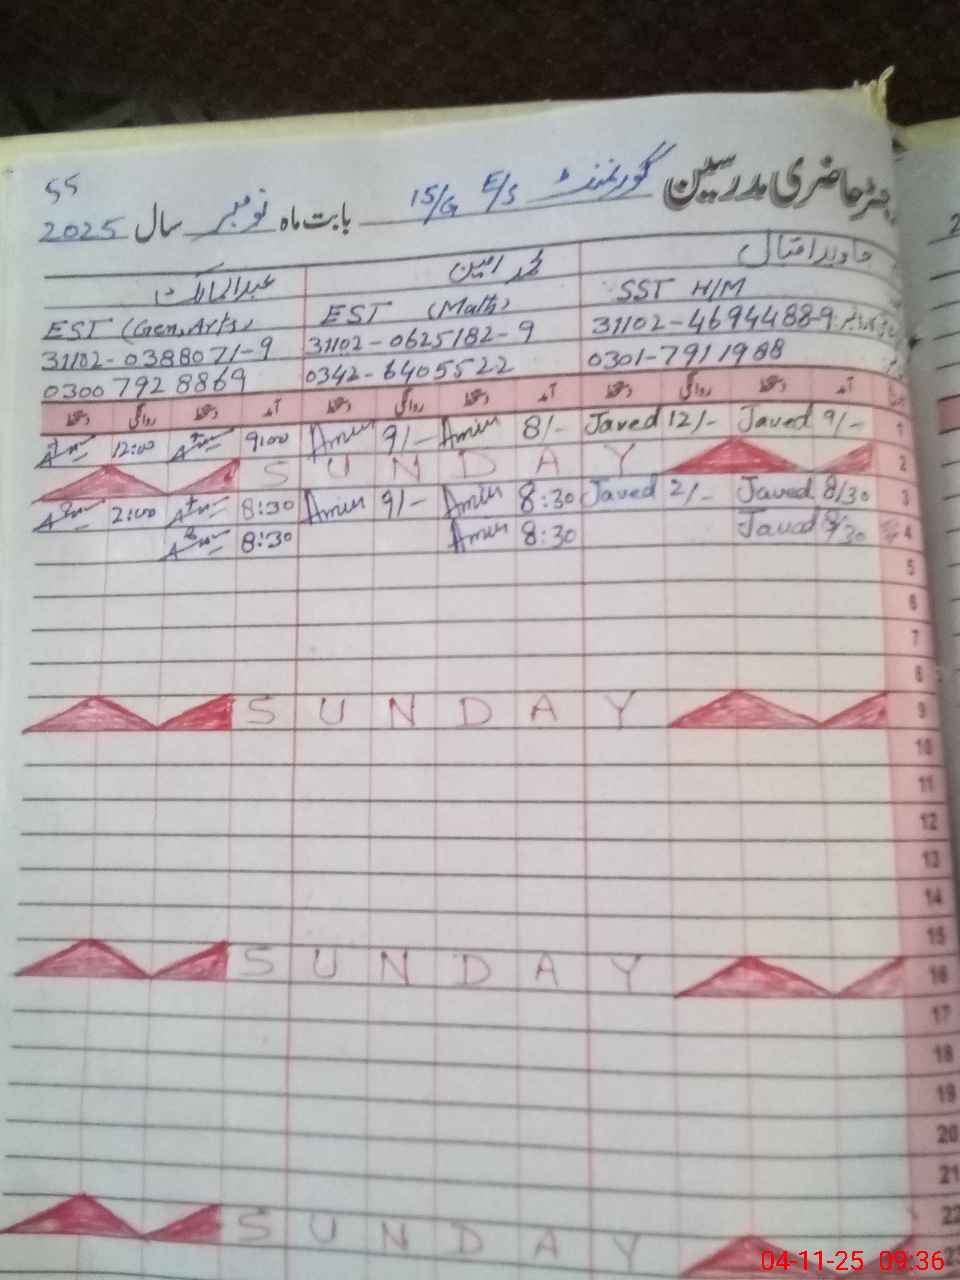 55
رجسٹر حاضری مدرسین گورنمنٹ E/S 15/G بابت ماہ نومبر سال 2025
جاوید اقبال محمد امین عبدالمالک
SST H/M EST (Math) EST (Gen, Arts)
31102-4694488-9 31102-0625182-9 31102-0388071-9
0301-7911988 0342-6405522 0300 792 8869
آمد دستخط روانگی دستخط آمد دستخط روانگی دستخط آمد دستخط روانگی دستخط
1 9/- Javed 12/- Javed 8/- Amin 9/- Amin 9:00 12:00
2 S U N D A Y
3 8/30 Javed 2/- Javed 8:30 Amin 9/- Amin 8:30 2:00
4 8/30 Javed 8:30 Amin 8:30
5
6
7
8
9 S U N D A Y
10
11
12
13
14
15
16 S U N D A Y
17
18
19
20
21
22
23 S U N D A Y
04-11-25 09:36